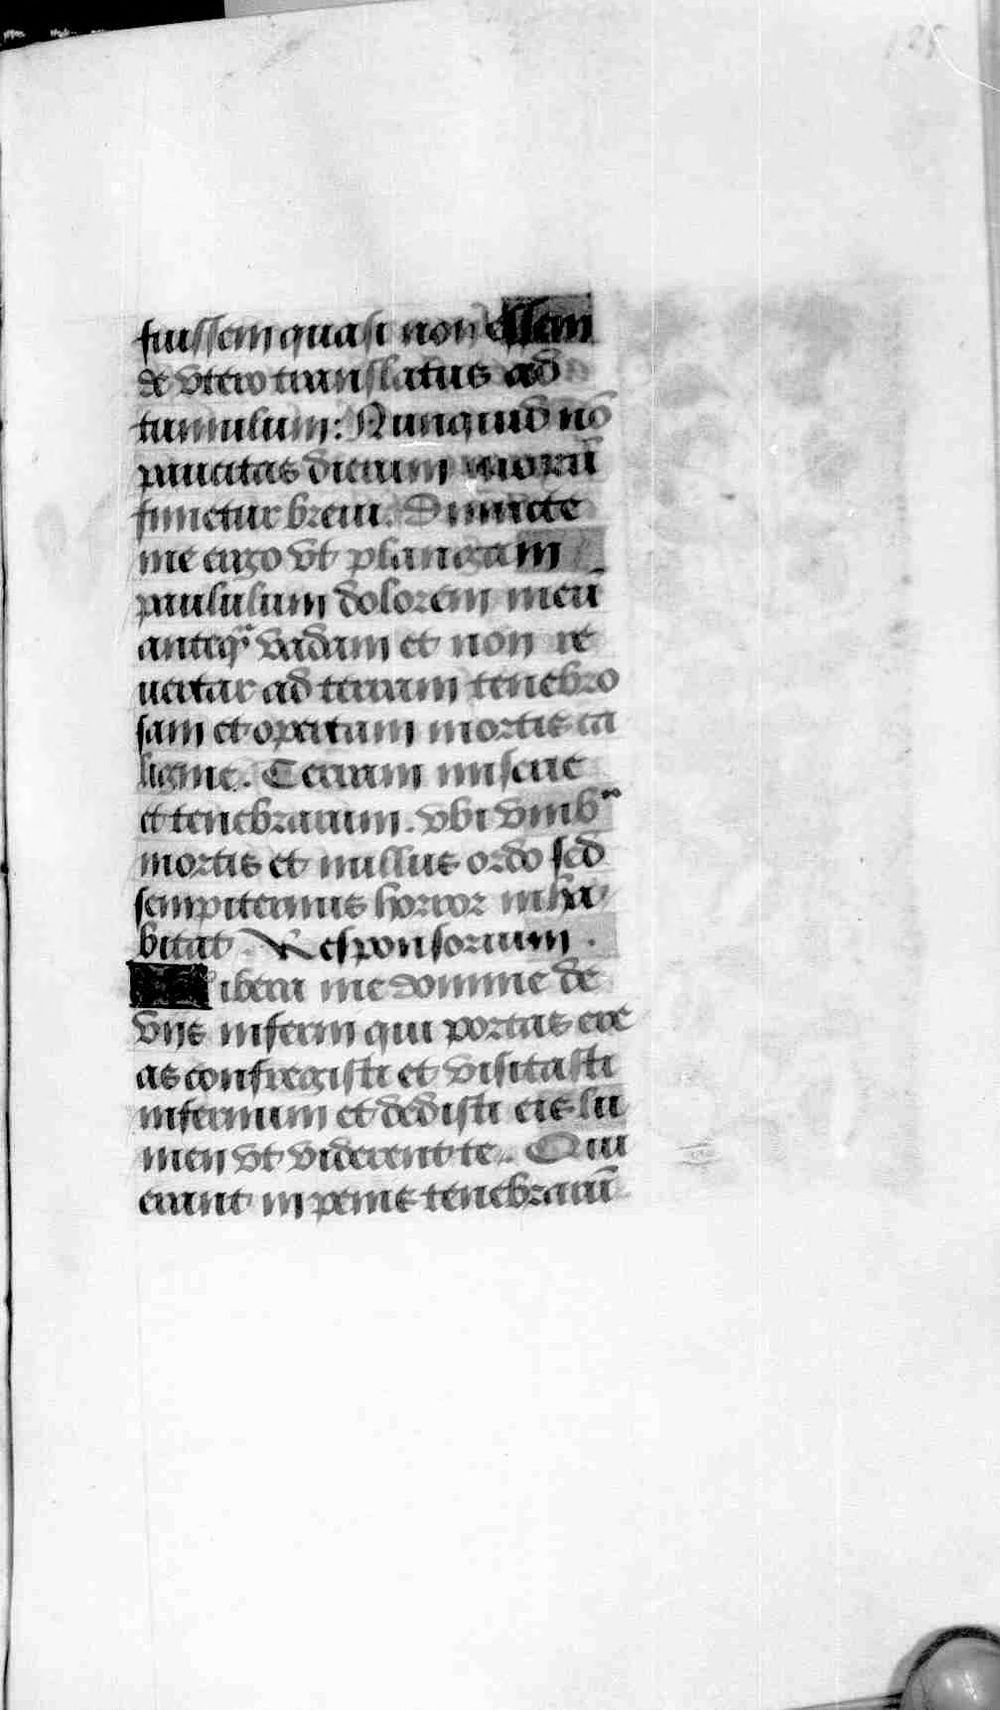 125
fuissem quasi non essem
de vtero translatus ad
tumulum: Nunquid nō
paucitas dierum meorū
finietur breui. Dimitte
me ergo vt plangam
paululum dolorem meū
anteqᵃ vadam et non re
uertar ad terram tenebro
sam et opertam mortis ca
ligine. Terram miserie
et tenebrarum. vbi vmbᵃ
mortis et nullus ordo sed
sempiternus horror inha
bitat. Responsorium.
Libera me domine de
vijs inferni qui portas ere
as confregisti et visitasti
infernum et dedisti eis lu
men vt viderent te. Qui
erant in penis tenebrarū